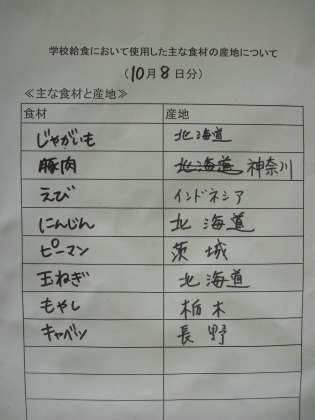 学校給食において使用した主な食材の産地について
(10月8日分)
≪主な食材と産地≫
食材 産地
じゃがいも 北海道
豚肉 北海道 神奈川
えび インドネシア
にんじん 北海道
ピーマン 茨城
玉ねぎ 北海道
もやし 栃木
キャベツ 長野